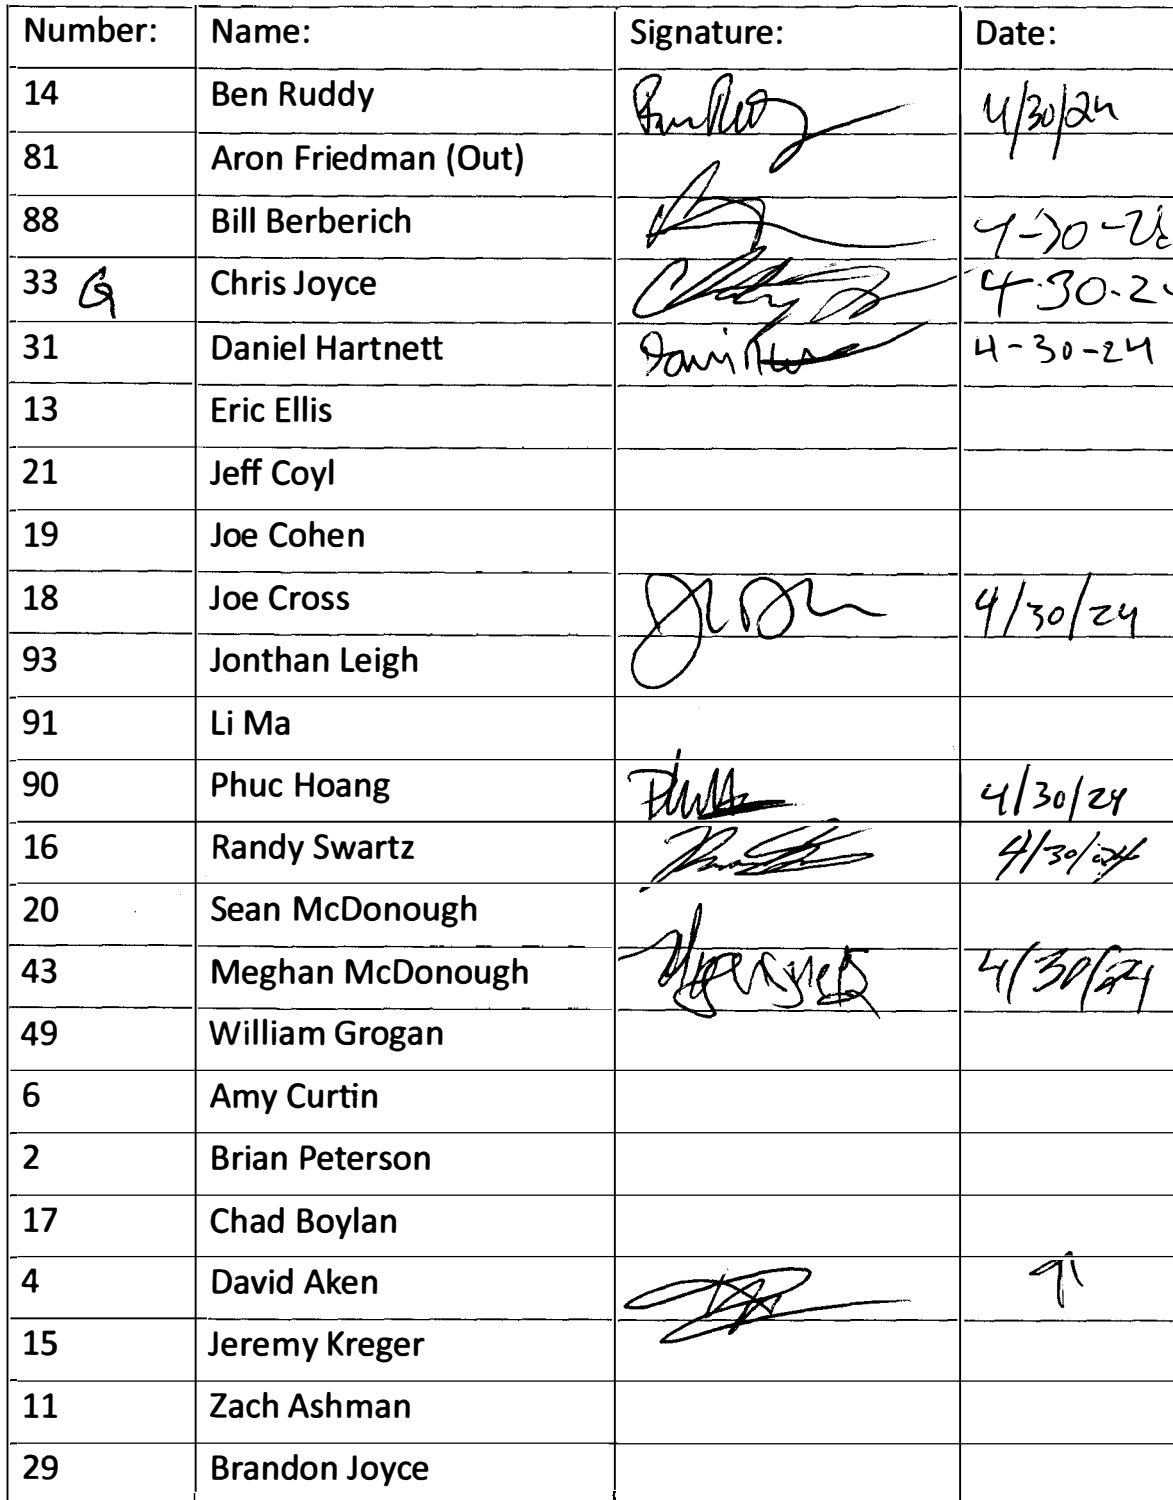 Number: Name: Signature: Date:
14 Ben Ruddy 4/30/24
81 Aron Friedman (Out)
88 Bill Berberich
33 G Chris Joyce 4-30-24
31 Daniel Hartnett 4-30-24
13 Eric Ellis
21 Jeff Coyl
19 Joe Cohen
18 Joe Cross 4/30/24
93 Jonthan Leigh
91 Li Ma
90 Phuc Hoang 4/30/24
16 Randy Swartz 4/30/24
20 Sean McDonough
43 Meghan McDonough 4/30/24
49 William Grogan
6 Amy Curtin
2 Brian Peterson
17 Chad Boylan
4 David Aken
15 Jeremy Kreger
11 Zach Ashman
29 Brandon Joyce